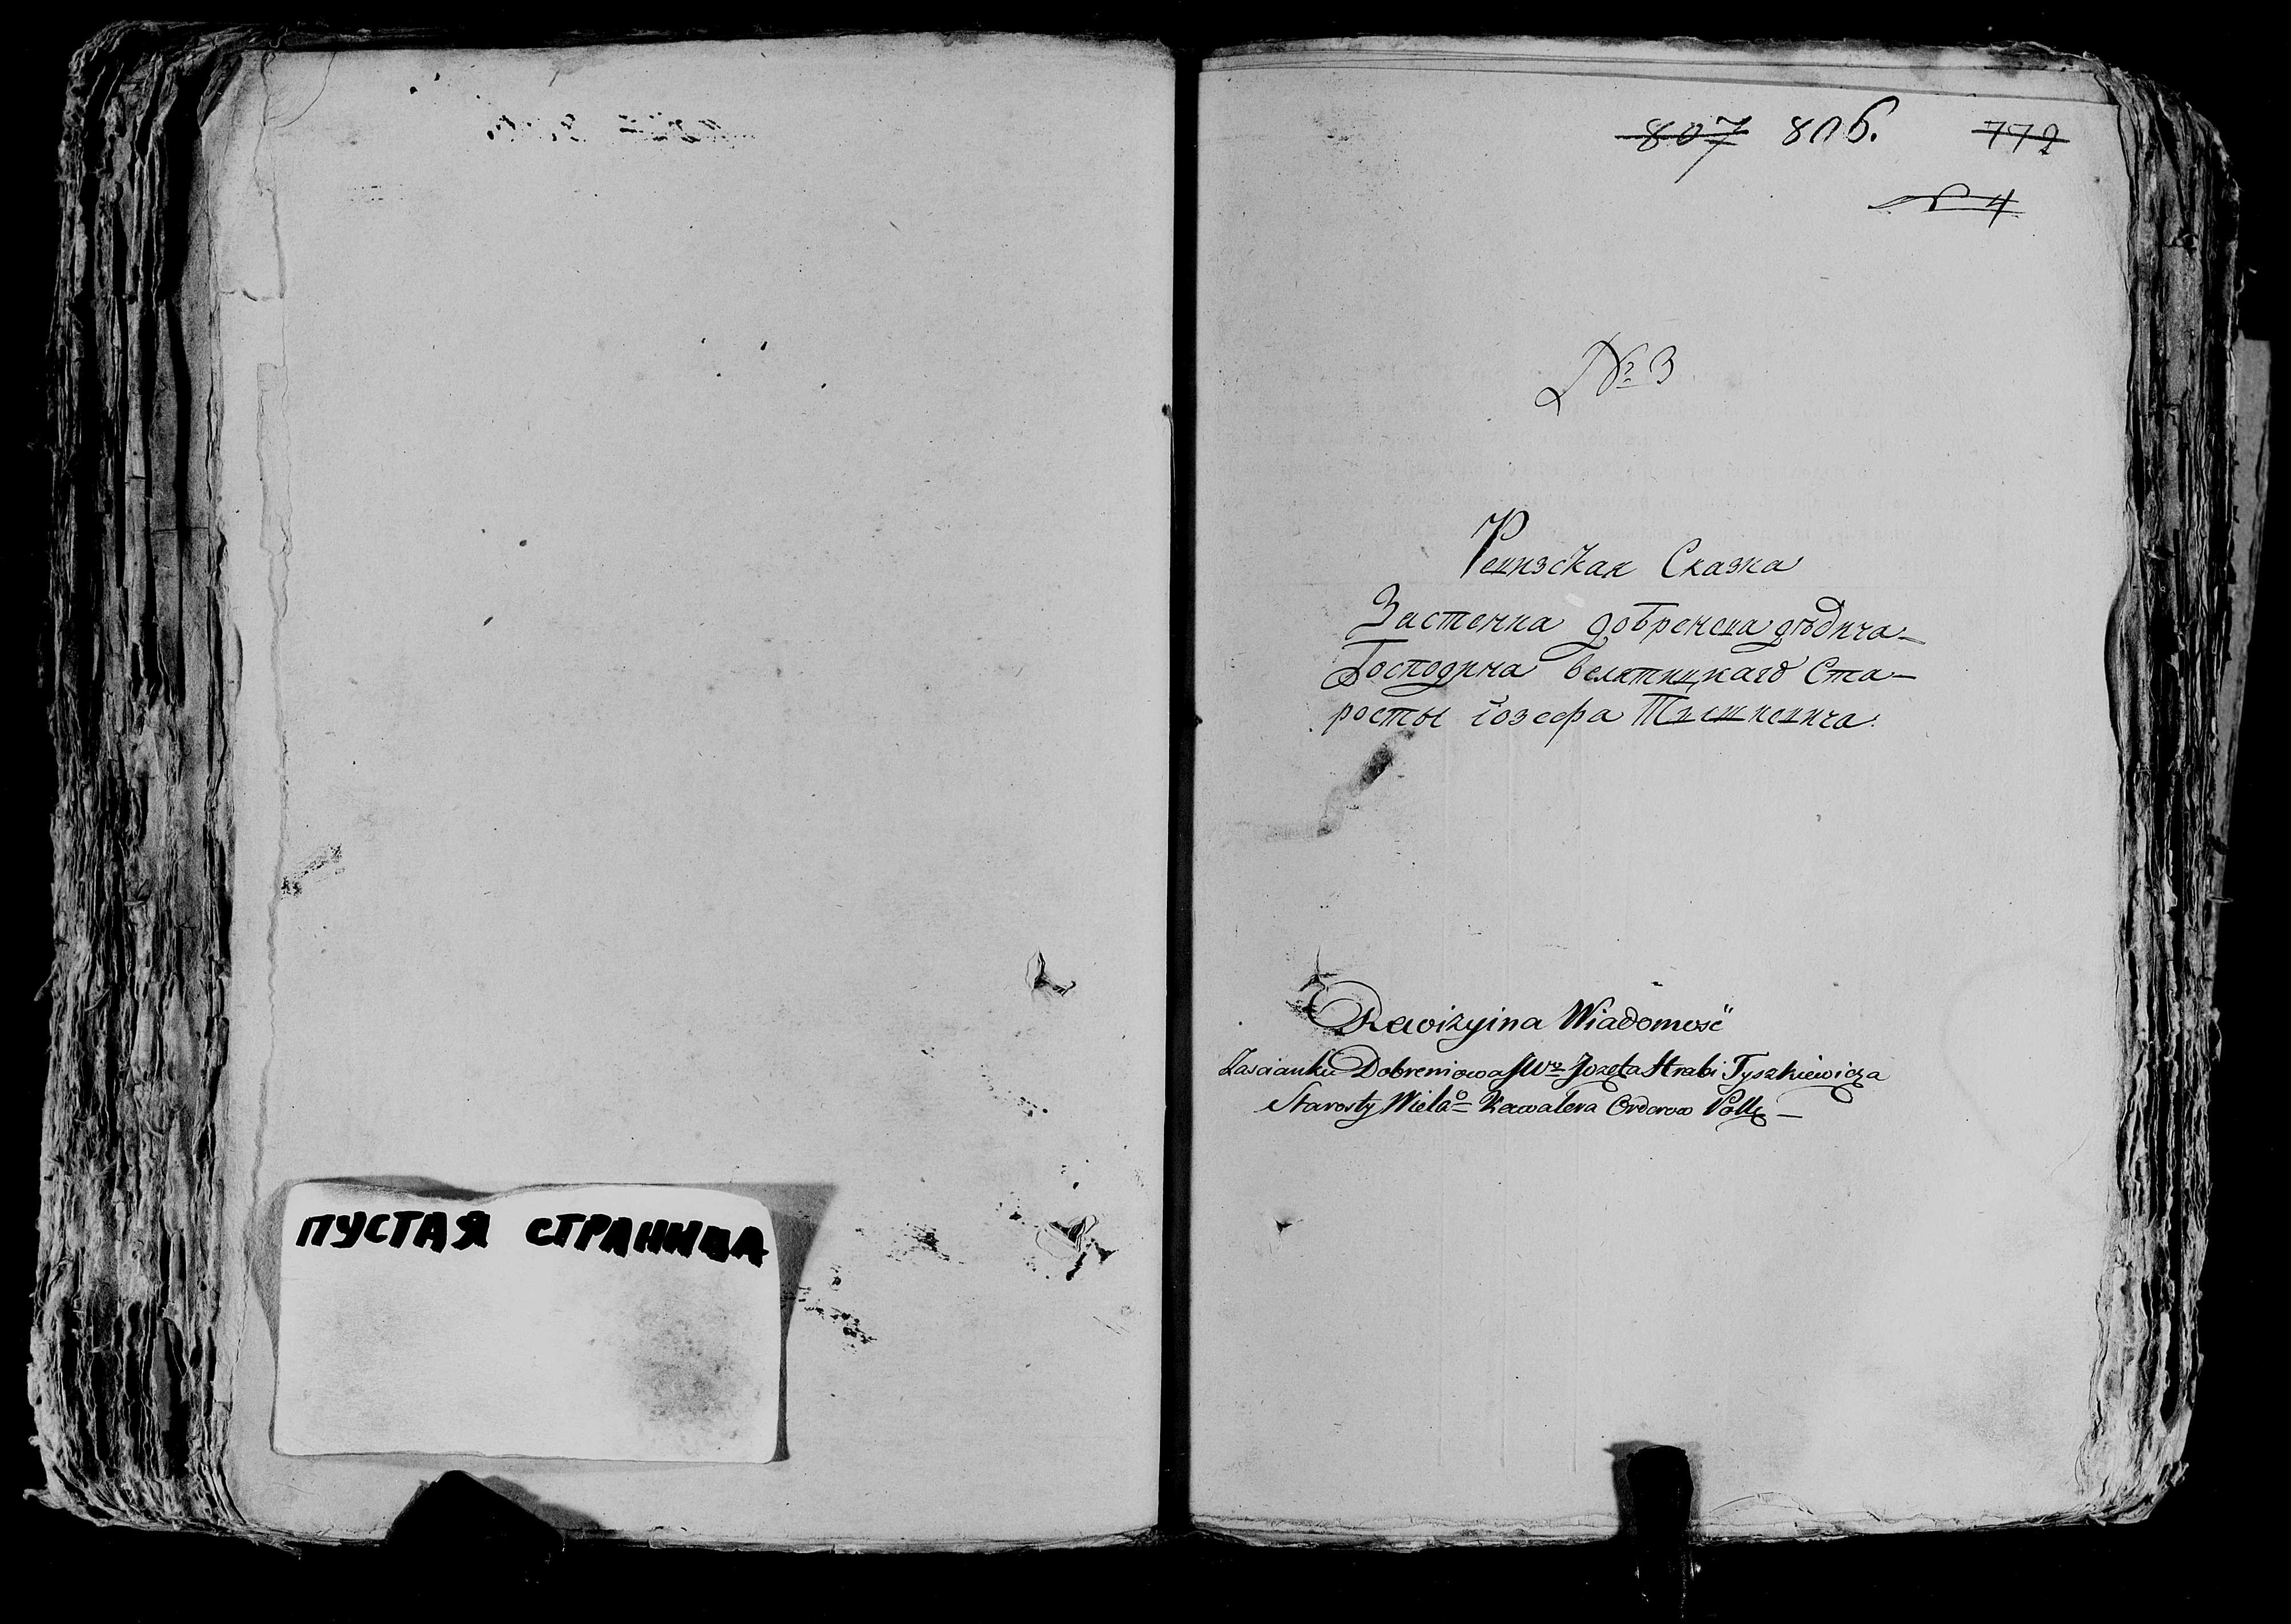 ПУСТАЯ СТРАНИЦА
807 806. 772
№ 4
№ 3
Ревизская Сказка
Застенка добренева дѣдича
Господина велятицкаго Ста-
росты іозефа Тышкевича.
Rewizyina Wiadomość
Zascianku Dobreniowa JWo Jozefa Hrabi Tyszkiewicza
Starosty Wielao Kawalera Orderow Polk